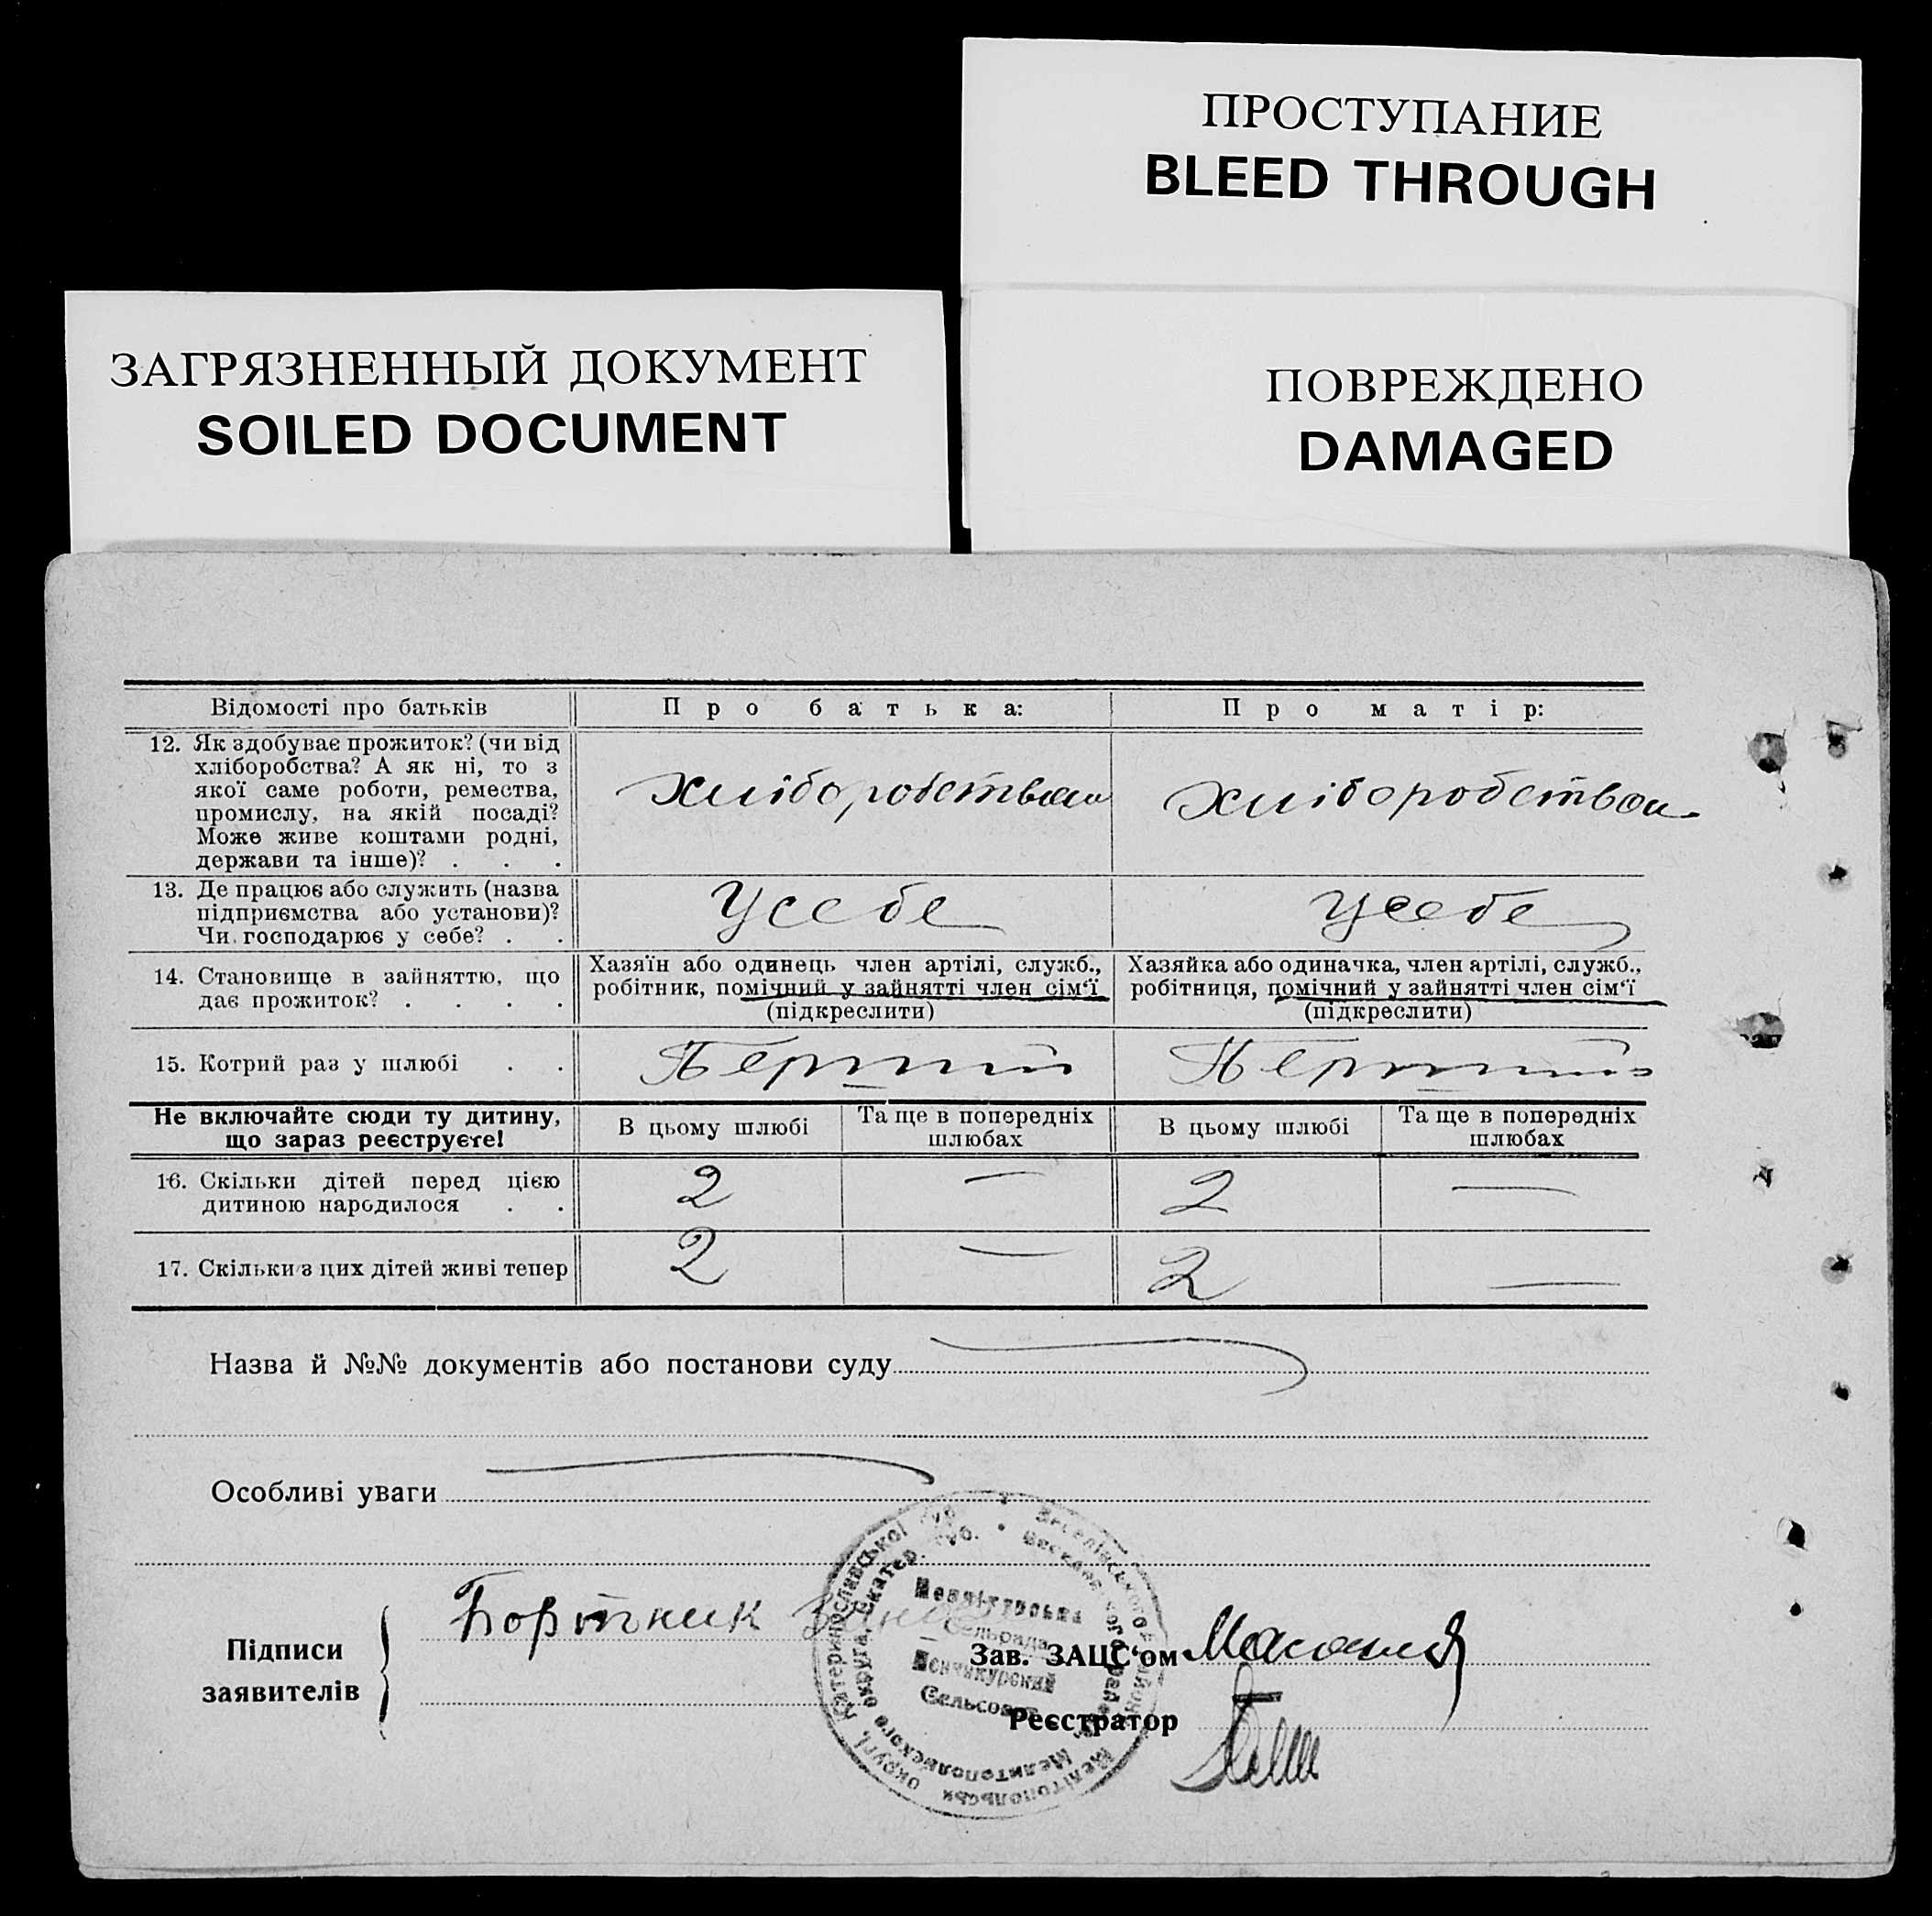 ПРОСТУПАНИЕ
BLEED THROUGH
ЗАГРЯЗНЕННЫЙ ДОКУМЕНТ
SOILED DOCUMENT
ПОВРЕЖДЕНО
DAMAGED
Відомості про батьків
Про батька:
Про матір:
12. Як здобуває прожиток? (чи від
хліборобства? А як ні, то з
якої саме роботи, ремества,
промислу, на якій посаді?
Може живе коштами родні,
держави та інше)? . . .
хліборобством
хліборобством
13. Де працює або служить (назва
підприємства або установи)?
Чи господарює у себе? . .
У себе
У себе
14. Становище в зайняттю, що
дає прожиток? . . . .
Хазяїн або одинець член артілі, служб.,
робітник, помічний у зайнятті член сім‘ї
(підкреслити)
Хазяйка або одиначка, член артілі, служб.,
робітниця, помічний у зайнятті член сім‘ї
(підкреслити)
15. Котрий раз у шлюбі . .
Перший
Перший
Не включайте сюди ту дитину,
що зараз реєструєте!
В цьому шлюбі
Та ще в попередніх
шлюбах
В цьому шлюбі
Та ще в попередніх
шлюбах
16. Скільки дітей перед цією
дитиною народилося . .
2 — 2 —
17. Скільки з цих дітей живі тепер
2 — 2 —
Назва й №№ документів або постанови суду
Особливі уваги
Підписи
заявителів
Бортник
Зав. ЗАЦС‘ом
Реєстратор
Сельрада
Менчикурский
Сельсовет
Мелитопольского округа, Екатер. губ.